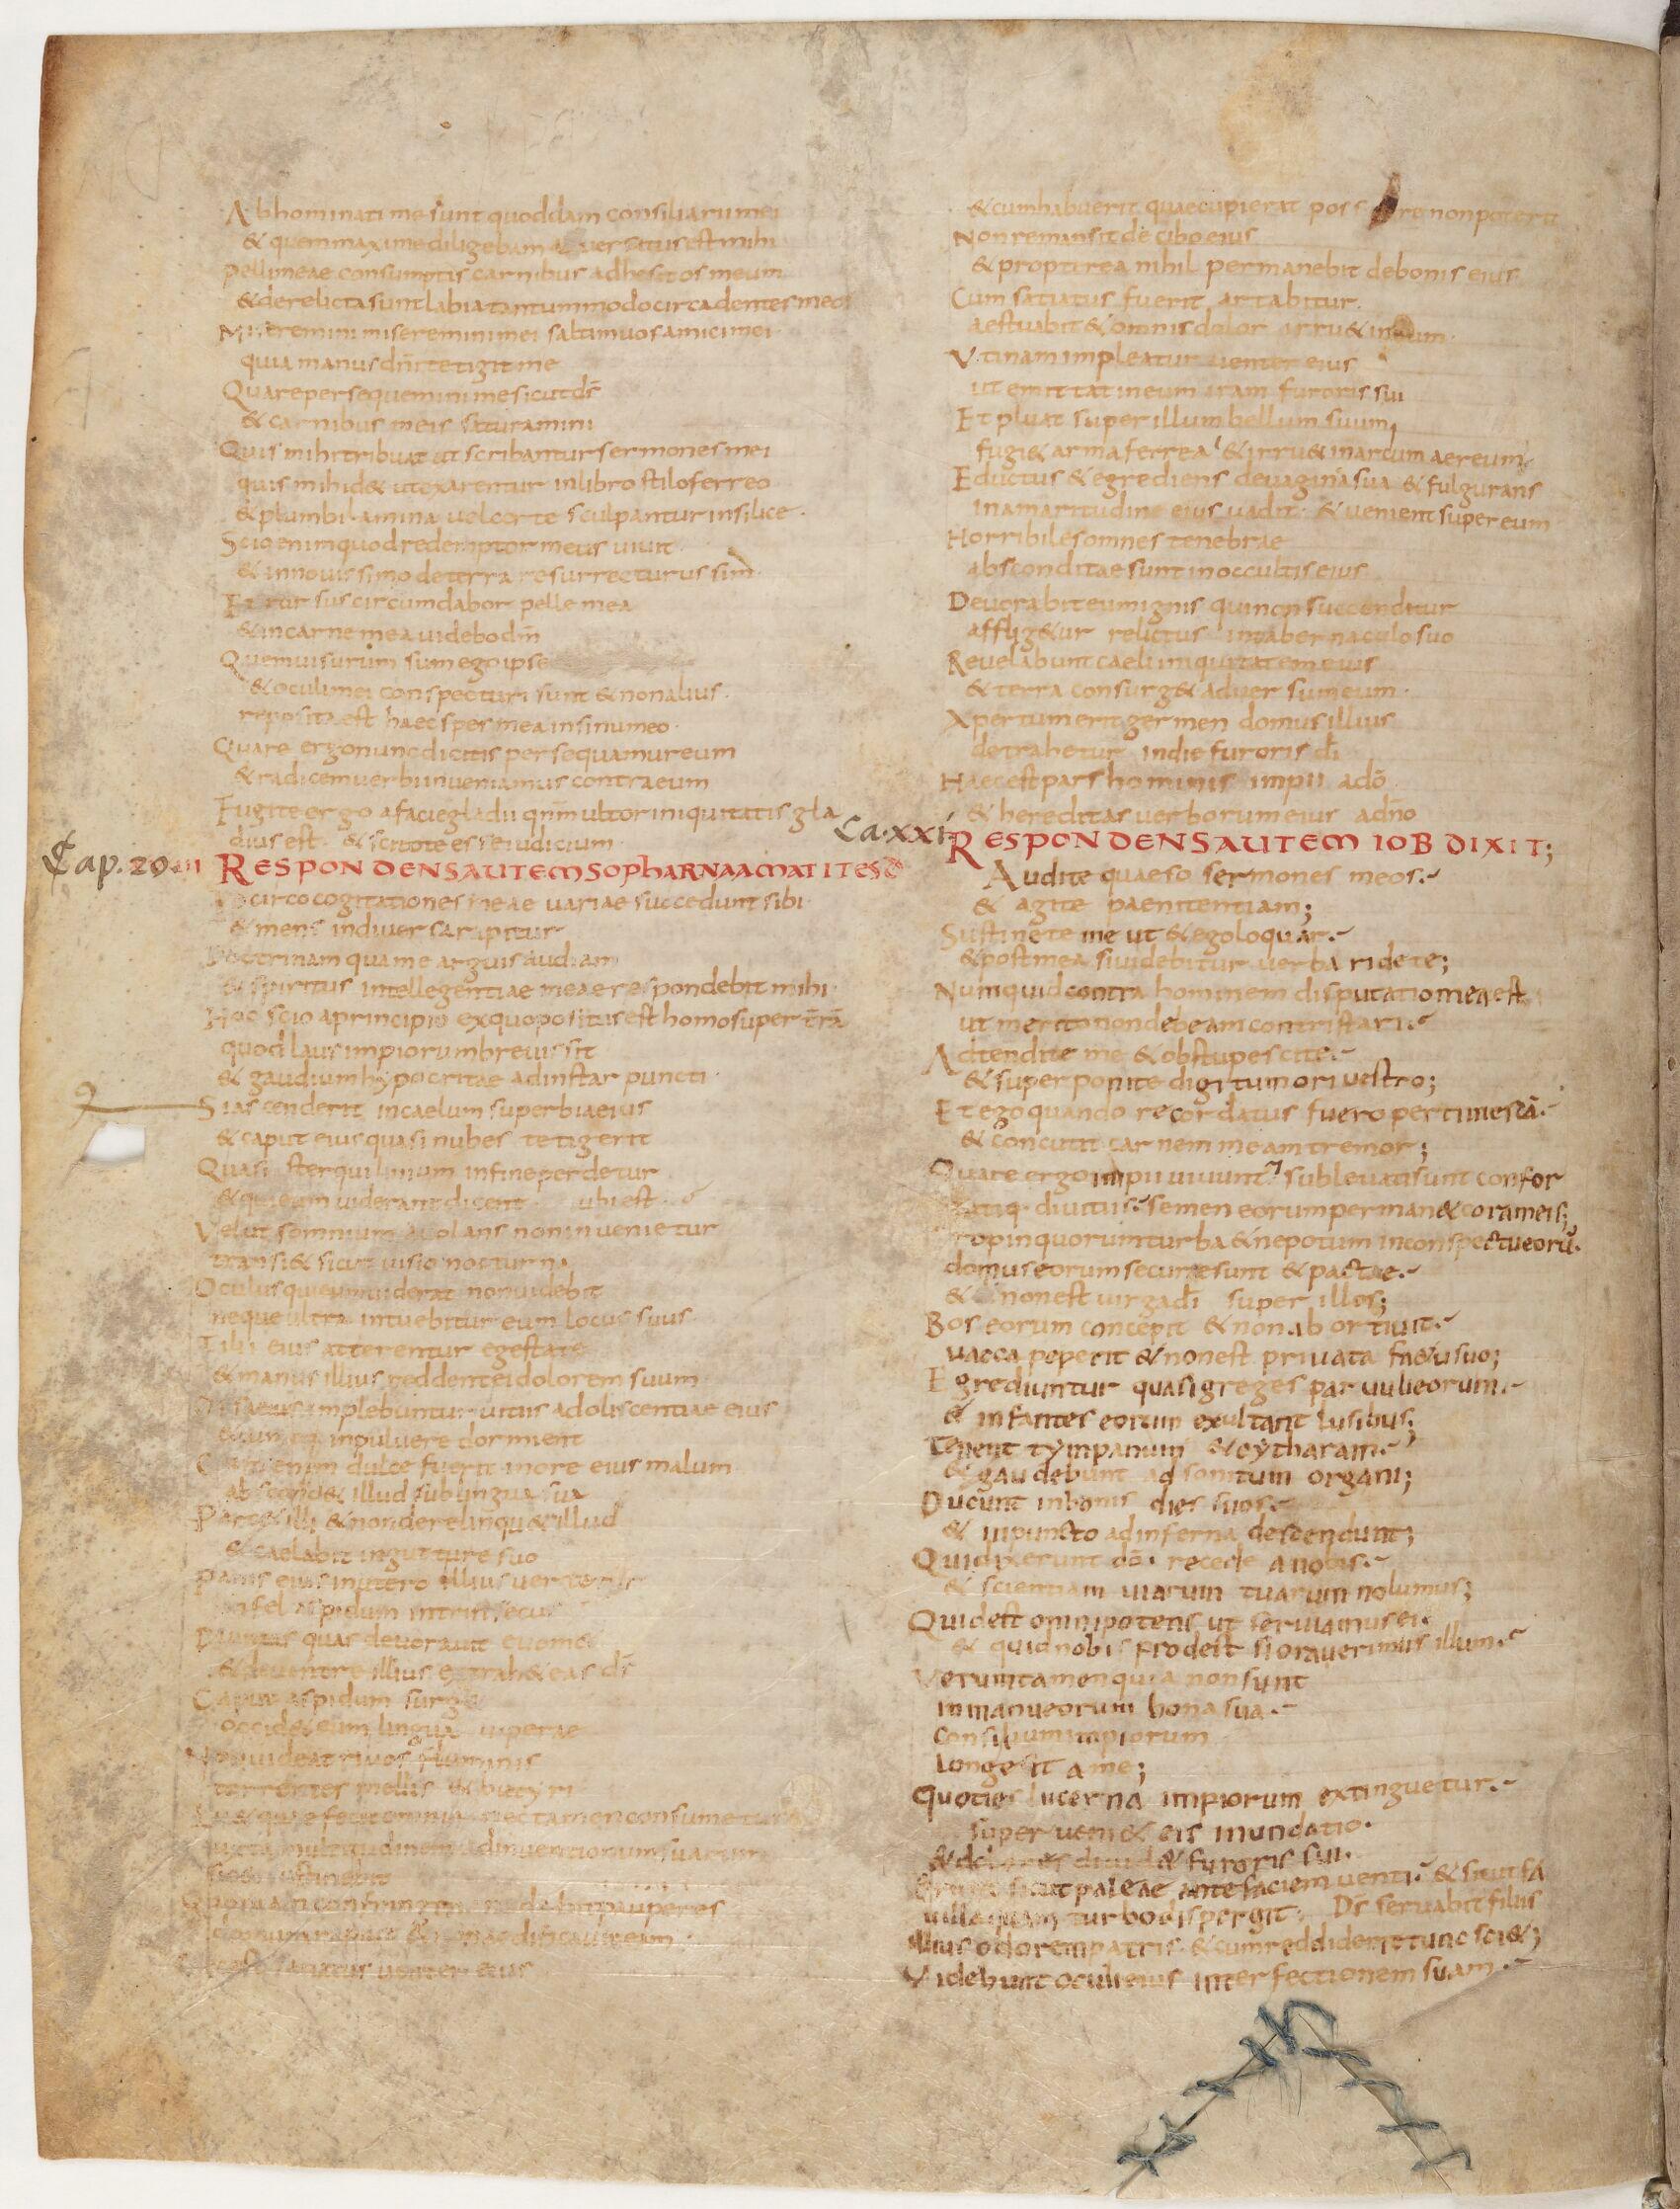 Abhominati me sunt quoddam consiliarii mei
& quem maxime diligebam aduersatus est mihi
pelli meae consumptis carnibus adhesit os meum
& derelicta sunt labia tantummodo circa dentes meos
Miseremini miseremini mei saltim uos amici mei
quia manus dñi tetigit me
Quare persequemini me sicut d̄s
& carnibus meis saturamini
Quis mihi tribuat ut scribantur sermones mei
quis mihi d& ut exarentur in libro stilo ferreo
& plumbi lamina uel certe sculpantur in silice
Scio enim quod redemptor meus uiuit
& in nouissimo de terra resurrecturus sim
Et rursus circumdabor pelle mea
& in carne mea uidebo dñ
Quem uisurum sum ego ipse
& oculi mei conspecturi sunt & non alius
reposita est haec spes mea in sinu meo
Quare ergo nunc dicitis persequamur eum
& radicem uerbi inueniamus contra eum
Fugite ergo a facie gladii qnm ultor iniquitatis gla
dius est & scitote esse iudicium
Cap. 20
RESPONDENS AUTEM SOPHAR NAAMATITES D
Idcirco cogitationes meae uariae succedunt sibi
& mens in diuersa rapitur
Doctrinam qua me arguis audiam
& spiritus intellegentiae meae respondebit mihi
Hoc scio a principio ex quo positus est homo super t̄rā
quod laus impiorum breuis sit
& gaudium hypocritae ad instar puncti
Si ascenderit in caelum superbia eius
& caput eius quasi nubes tetigerit
Quasi sterquilinium in fine perdetur
& qui eum uiderant dicent ubi est
Velut somnium auolans non inuenietur
transi& sicut uisio nocturna
Oculus qui eum uiderat non uidebit
neque ultra intuebitur eum locus suus
Filii eius atterentur egestate
& manus illius reddent ei dolorem suum
Ossa eius implebuntur uitiis adoliscentiae eius
& cum eo in puluere dormient
Cum enim dulce fuerit in ore eius malum
abscond& illud sub lingua sua
Parc& illi & non derelinqu& illud
& caelabit in gutture suo
Panis eius in utero illius uertetur
in fel aspidum intrinsecus
Diuitias quas deuorauit euomet
& de uentre illius extrah& eas d̄s
Caput aspidum surg&
occid& eum lingua uiperae
Non uideat riuos fluminis
torrentes mellis & butyri
Luet quae fecit omnia nec tamen consumetur
iuxta multitudinem adinuentionum suarum
sic & sustinebit
Quoniam confringens nudabit pauperes
domum rapuit & non aedificauit eam
Nec est satiatus uenter eius
& cum habuerit quae cupierat poss re non poterit
Non remansit de cibo eius
& propterea nihil permanebit de bonis eius
Cum satiatus fuerit artabitur
aestuabit & omnis dolor irru& in eum
Vtinam impleatur uenter eius
ut emittat in eum iram furoris sui
Et pluat super illum bellum suum
fugi& arma ferrea & irru& in arcum aereum
Eductus & egrediens de uagina sua & fulgurans
in amaritudine eius uadit & uenient super eum
Horribiles omnes tenebrae
absconditae sunt in occultis eius
Deuorabit eum ignis qui non succenditur
afflig&ur relictus in tabernaculo suo
Reuelabunt caeli iniquitatem eius
& terra consurg& aduersum eum
Apertum erit germen domus illius
detrahetur in die furoris di
Haec est pars hominis impii a dō
& hereditas uerborum eius a dño
Ca. xxi
RESPONDENS AUTEM IOB DIXIT;
Audite quaeso sermones meos
& agite paenitentiam;
Sustinete me ut & ego loquar
& post mea si uidebitur uerba ridete;
Numquid contra hominem disputatio mea est
ut merito non debeam contristari
Adtendite me & obstupescite
& superponite digitum ori uestro;
Et ego quando recordatus fuero pertimescā
& concutit carnem meam tremor;
Quare ergo impii uiuunt subleuati sunt confor
tatiq. diuitiis semen eorum perman& coram eis;
Propinquorum turba & nepotum in conspectu eorū.
domus eorum securae sunt & pactae
& non est uirga di super illos;
Bos eorum concepit & non abortiuit
uacca peperit & non est priuata fa&u suo;
Egrediuntur quasi greges paruuli eorum
& infantes eorum exultant lusibus;
Tenent tympanum & cytharam
& gaudebunt ad sonitum organi;
Ducunt in bonis dies suos
& in puncto ad inferna descendunt;
Qui dixerunt dō. recede a nobis
& scientiam uiarum tuarum nolumus;
Quid est omnipotens ut seruiamus ei
& quid nobis prodest si orauerimus illum
Veruntamen quia non sunt
in manu eorum bona sua
Consilium impiorum
longe sit a me;
Quoties lucerna impiorum extinguetur
superueni& eis inundatio
& dolores diuid& furoris sui
Erunt sicut paleae ante faciem uenti & sicut fa
uilla quam turbo dispergit D̄s seruabit filiis
illius dolorem patris & cum reddiderit tunc sci&;
Videbunt oculi eius interfectionem suam